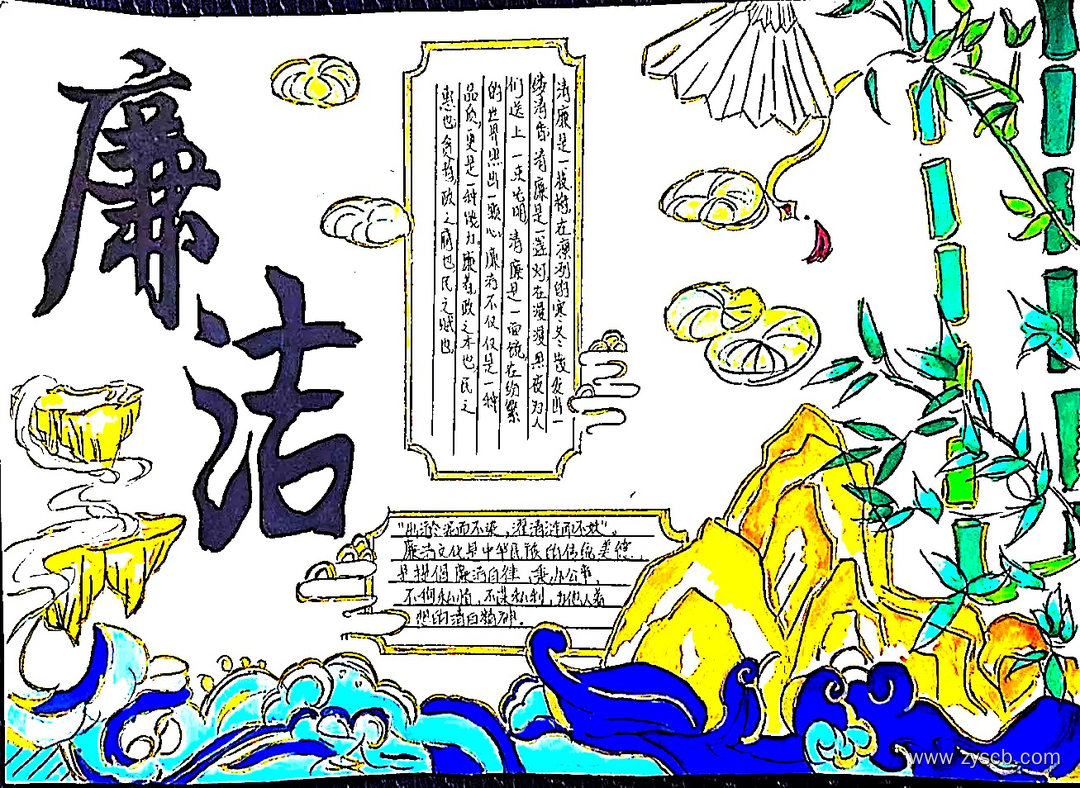 廉洁
清廉是一枝梅,在凛冽的寒冬散发出一
缕清香,清廉是一盏灯,在漫漫黑夜为人
们送上一束光明,清廉是一面镜,在纷繁
的世界照出一颗心,廉洁不仅仅是一种
品质,更是一种能力。廉者,政之本也,民之
惠也,贪者,政之腐也,民之贼也
"出淤泥而不染,濯清涟而不妖",
廉洁文化是中华民族的传统美德,
是提倡廉洁自律,秉办公事,
不徇私情,不谋私利,为他人着
想的清白精神。
www.zyscb.com